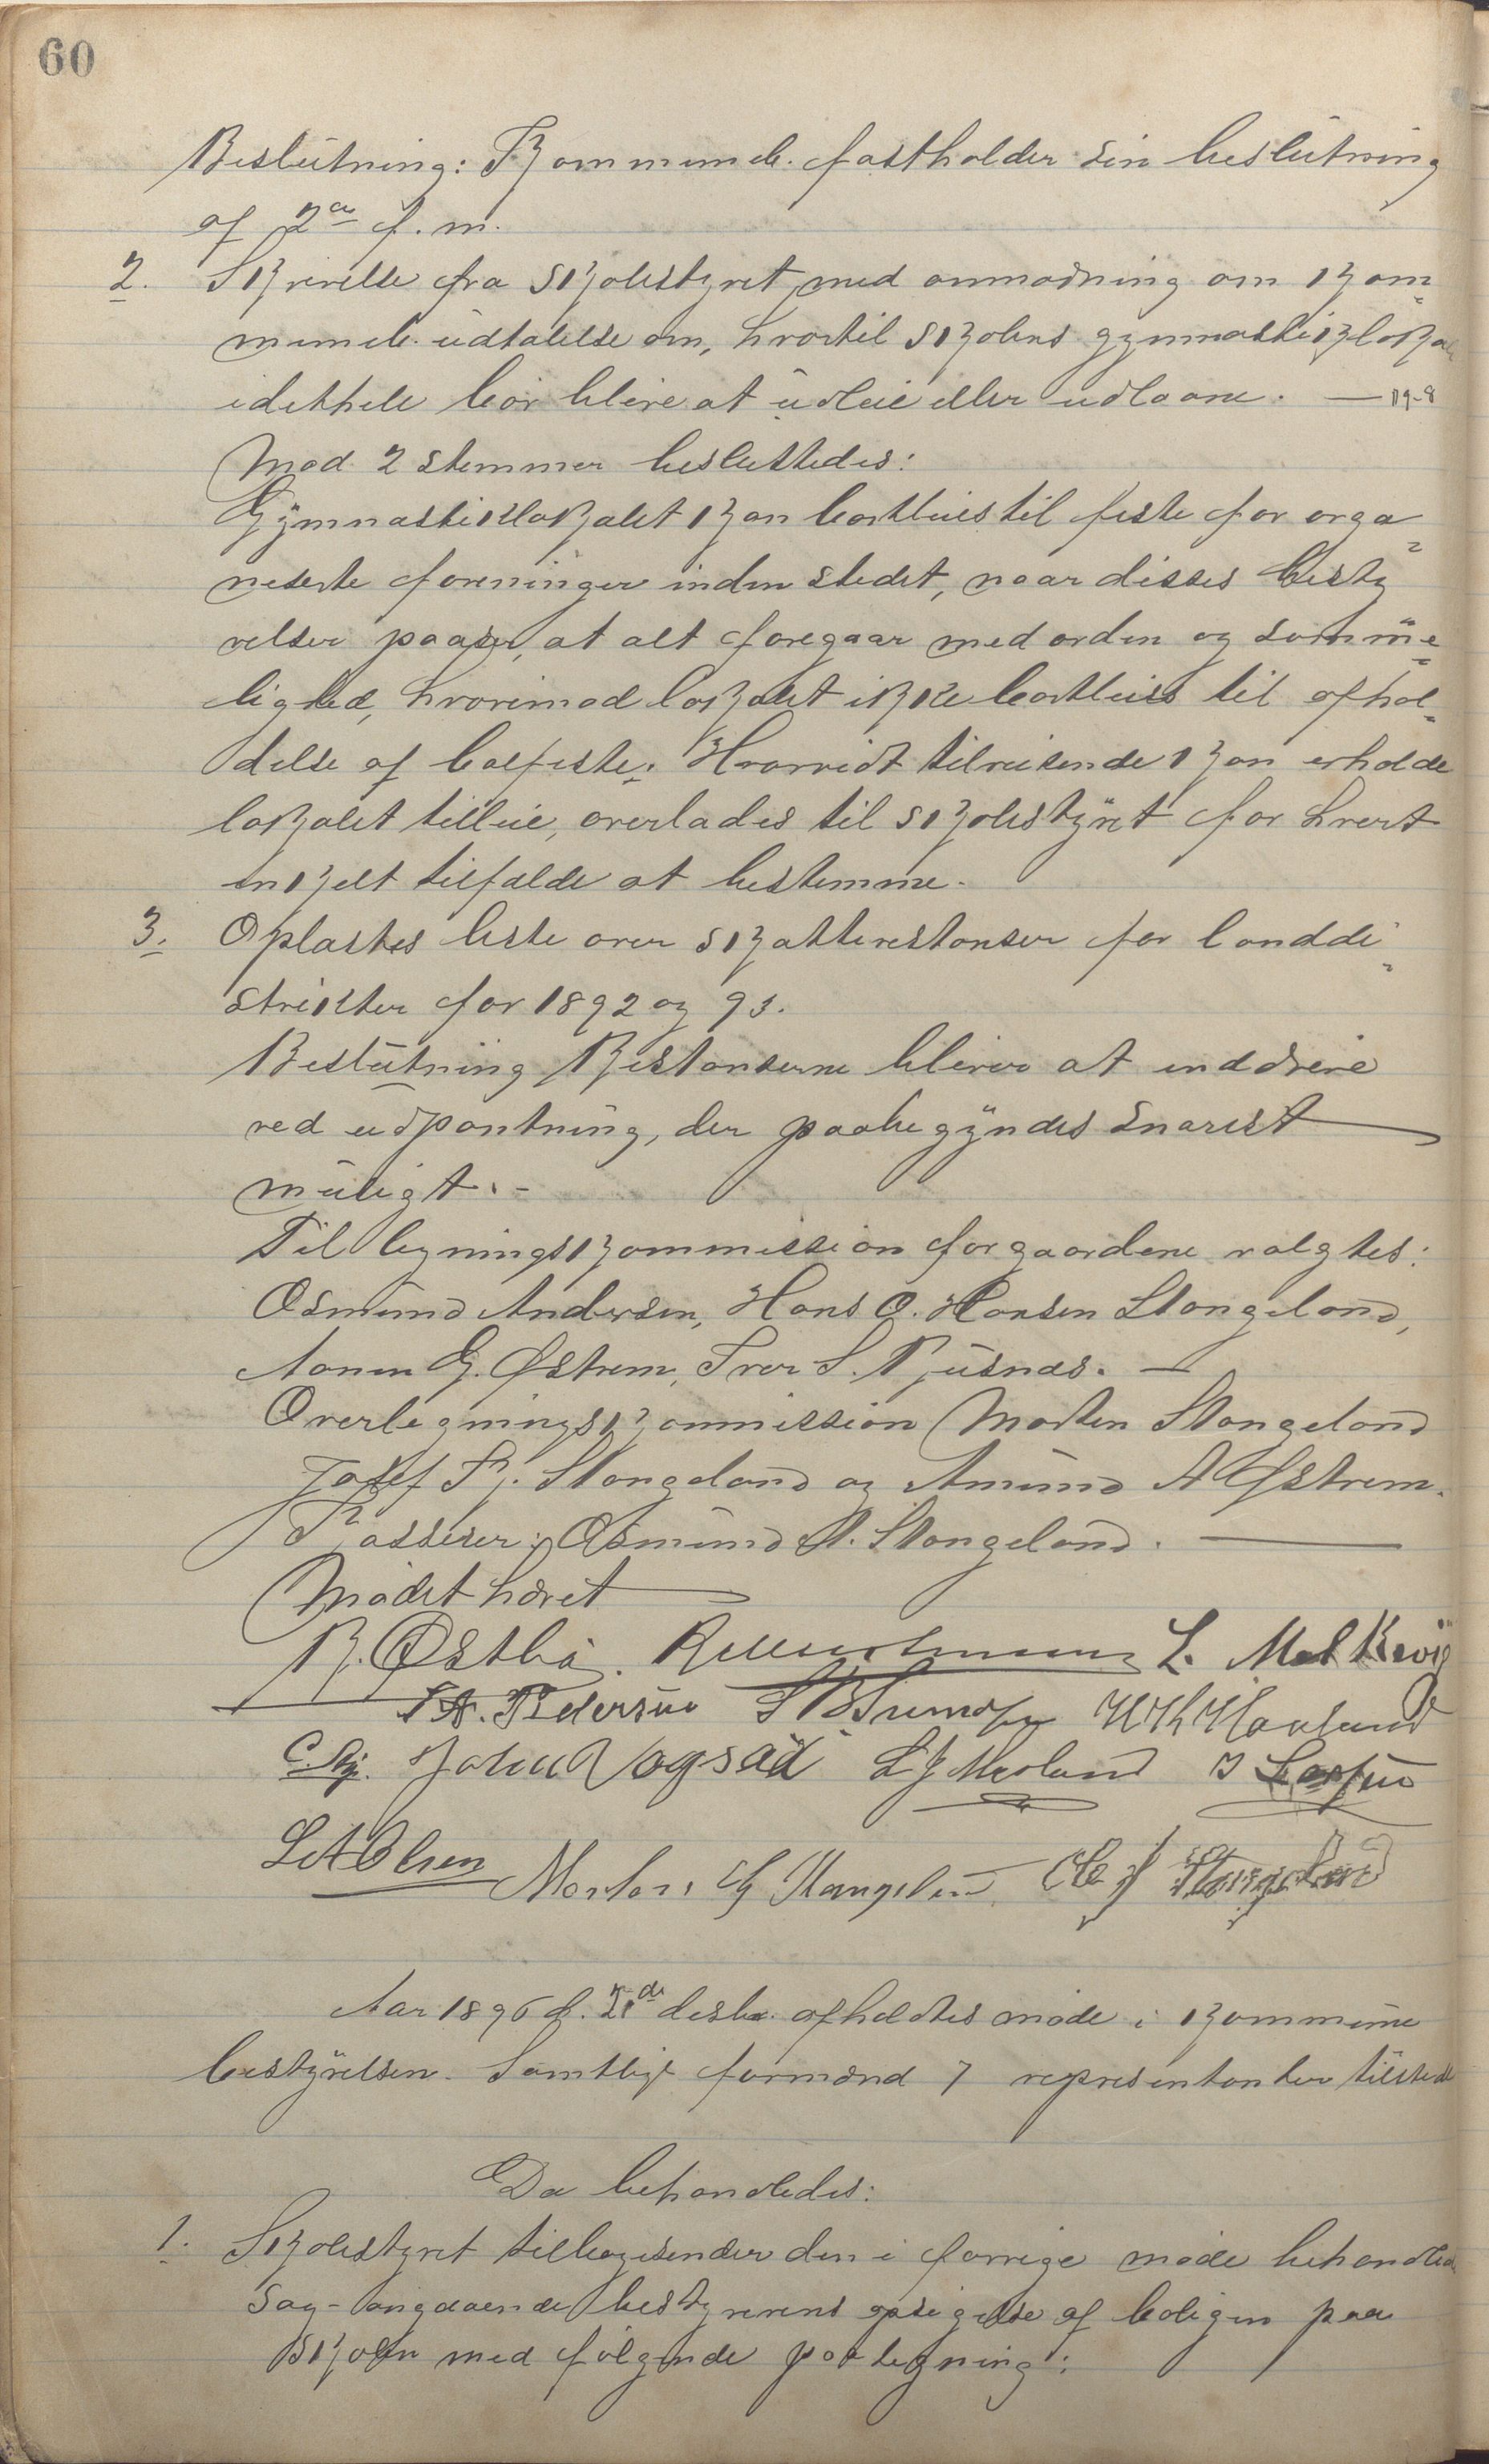 60
Beslutning: Kommuneb. fastholder sin beslutning
af 2den f. m.
2. Skrivelse fra Skolestyret med anmodning om kom=
muneb. udtalelse om, hvortil skolens gymnastiklokale
idethele bør blive at udleie eller udlaane. — 19-8
Mod 2 stemmer besluttedes:
Gymnastiklokalet kan bortleies til feste for orga=
neserte foreninger inden stedet, naar disses besty
relser paaser, at alt foregaar med orden og sømme=
lighed, hvorimod lokalet ikke bortleies til afhol=
delse af balfeste. Hvorvidt tilreisende kan erholde
lokalet tilleie, overlades til skolestyret for hvert
enkelt tilfælde at bestemme.
3. Oplæstes liste over skatterestanser for landdi=
strikter for 1892 og 93.
Beslutning Restanserne bliver at inddrive
ved udpantning, der paabegyndes snarest
muligt. -
Til ligningskommission for gaardene valgtes:
Osmund Andersen, Hans O. Hansen Stangeland,
Aanen G. Østrem, Iver S. Vjusnæs. —
Overligningskommission Morten Stangeland
Josef Kj. Stangeland og Amund A Østrem.
Kasserer: Osmund A. Stangeland. —
Mødet hævet
R. Østbø. L. Melkevig
T. A. Pedersen H Th Haaland
John Vogsæd L J Mæland I Larsen
L A Olsen Morten G Stangeland Ole J Stangeland
Aar 1896 d. 21de desbr. afholdtes møde i kommune
bestyrelsen. Samtlige formænd 7 representanter tilstede
Da behandledes:
1. Skolestyret tilbagesender den i forrige møde behandlede
sag - angaaende bestyrerens opsigelse af boligen paa
skolen med følgende paategning: